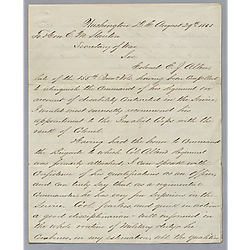 Washington D.C. August 29th 1863
To Hon. E. M. Stanton
Secretary of War
Sir
Colonel E. J. Allen
late of the 155th Penn Vols. having been compelled
to relinquish the command of his regiment on
account of disability contracted in the service,
I would most earnestly recommend his
appointment to the Invalid Corps with the
rank of Colonel.
Having had the honor to command
the Brigade to which Col Allen's regiment
was formerly attached, I can speak with
confidence of his qualifications as an officer,
and can truly say that as a regimental
commander he is very superior in the
service. Cool, fearless, and quiet in action
a good disciplinarian - well informed on
the whole routine of military duty, he
combines, in my estimation, all the qualities